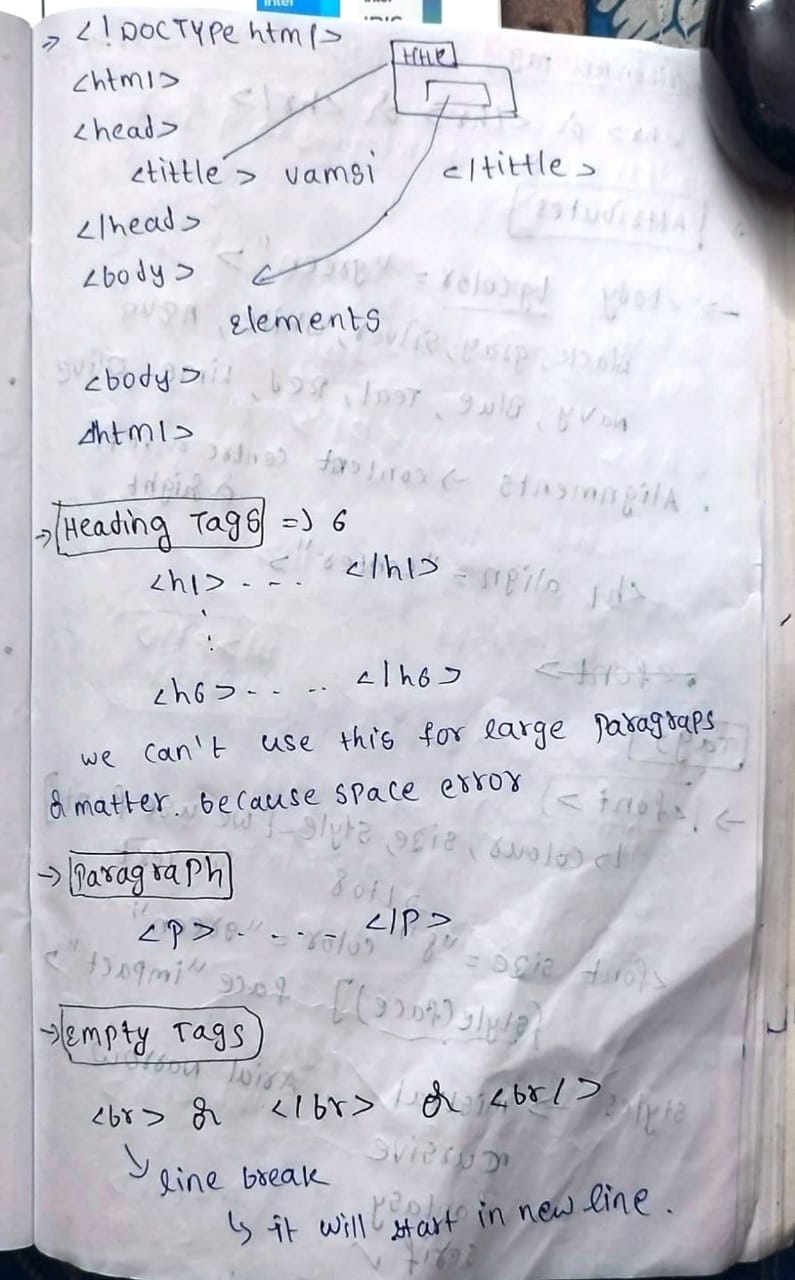 → <!DOCTYPE html>
title
<html>
<head>
<tittle> vamsi </tittle>
</head>
<body>
elements
<body>
</html>
→ Heading Tags => 6
<h1> - - - </h1>
<h6> - - - - </h6>
we can't use this for large paragraps
& matter. because space error
→ Paragraph
<p> - - - - </p>
→ Empty Tags
<br> & </br> & <br/>
line break
↳ it will start in new line.